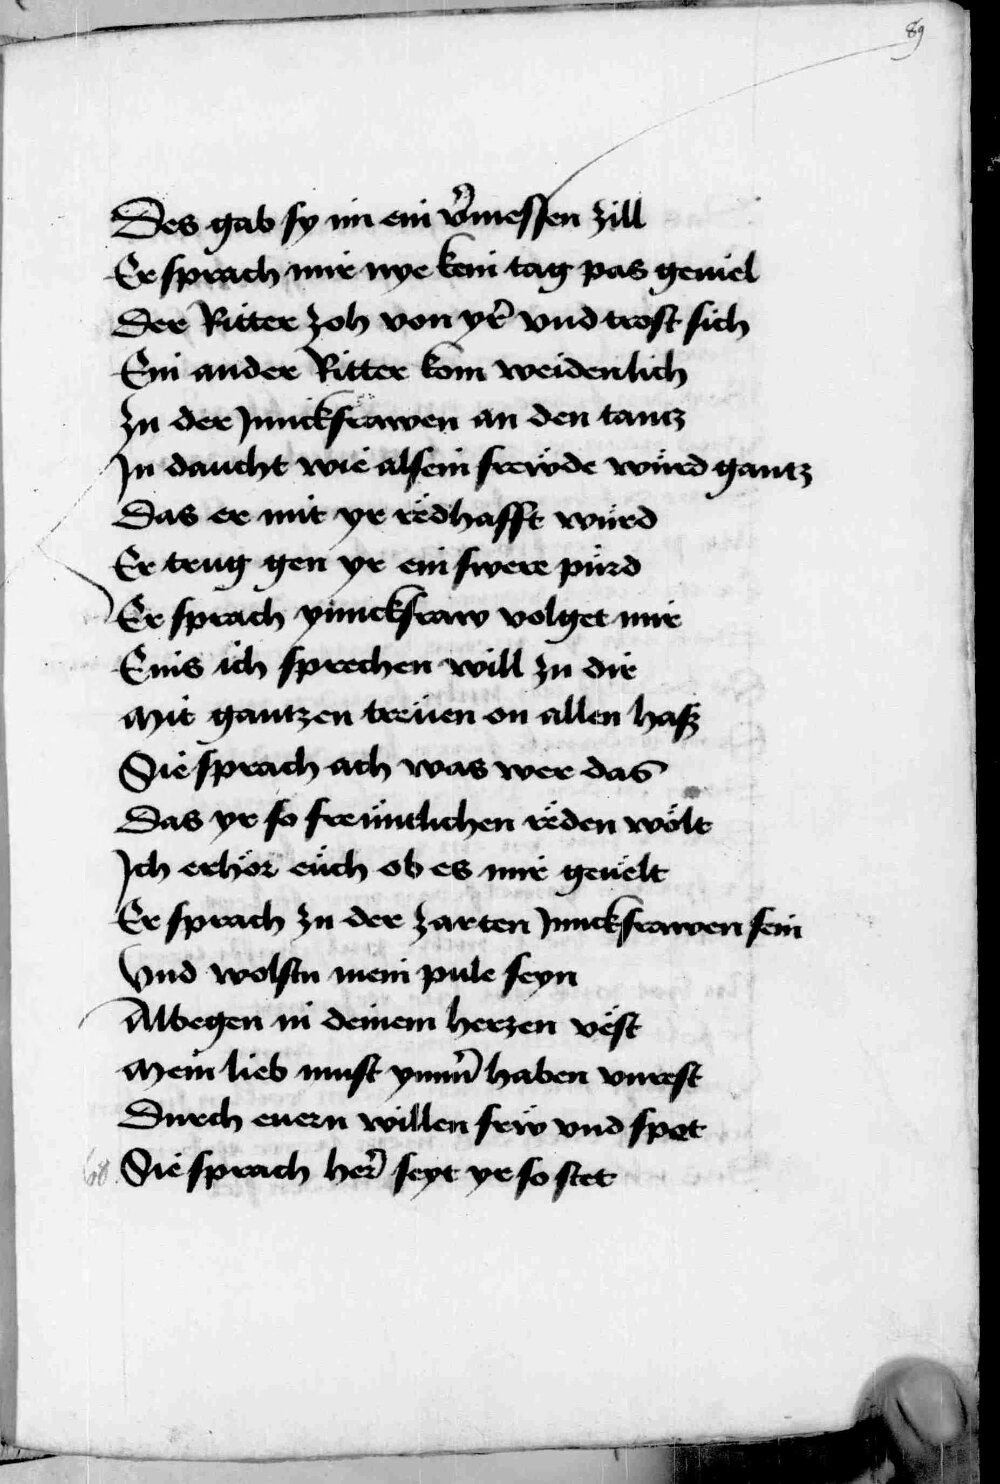 89
Des gab sy im ein v̾messen zill
Er sprach mir nye kein tag pas geuiel
Der Ritter zoh von yr̾ vnd trost sich
Ein ander Ritter kom weidenlich
Zu der Junckfrawen an den tantz
In daucht wie all sein frewde würd gantz
Das er mit yr redhafft würd
Er trug gen yr ein swere pürd
Er sprach yunckfraw volget mir
Eins ich sprechen will zu dir
Mit gantzen treüen on allen haß
Sie sprach ach was wer das
Das yr so freüntlichen reden wölt
Ich erhör eüch ob es mir geuelt
Er sprach zu der zarten Junckfrawen fein
Vnd wolstu mein pule seyn
Albegen in deinem herzen vest
Mein lieb must ymm̾ haben vnrest
Durch euern willen frw vnd spet
68 Sie sprach her̾ seyt yr so stet